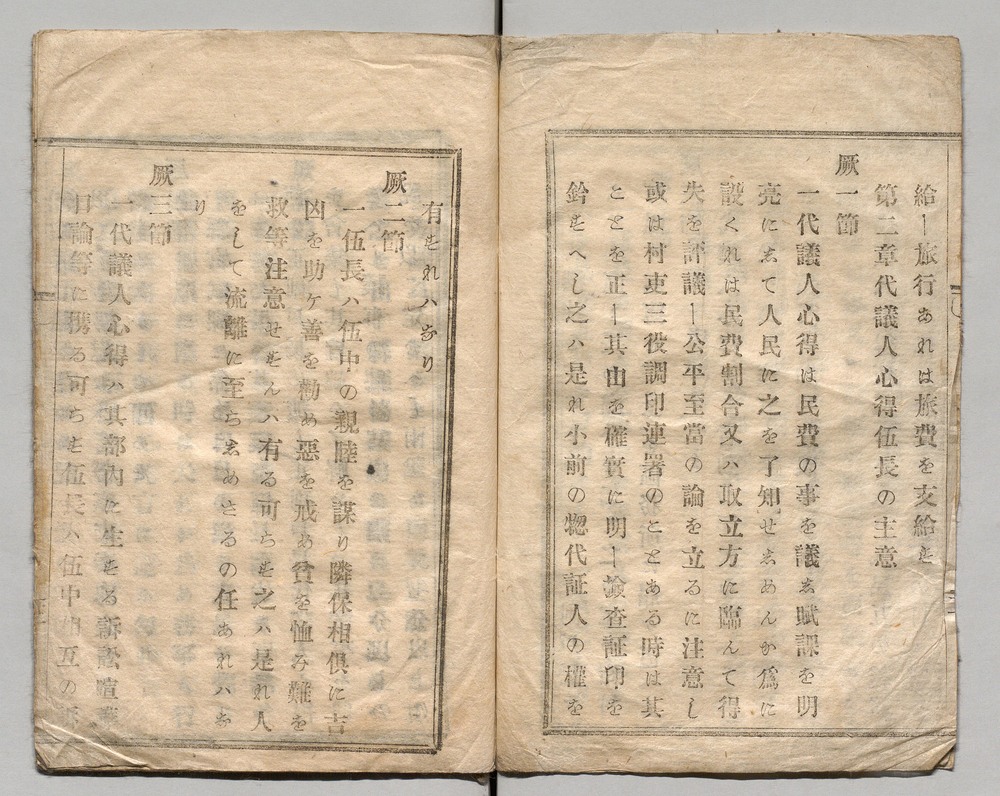 給ー旅行あれは旅費を支給を
第二章代議人心得伍長の主意
厥一節
一代議人心得は民費の事を議ゑ賦課を明
亮にゑて人民に之を了知せゑめんか爲に
設くれは民費割合又ハ取立方に臨んて得
失を評議ー公平至當の論を立るに注意し
或は村吏三役調印連署のことある時は其
ことを正ー其由を確實に明ー撿查証印を
鈴をへし之ハ是れ小前の惣代証人の權を
有をれハなり
厥二節
一伍長ハ伍中の親睦を謀り隣保相倶に吉
凶を助ケ善を勸め惡を戒め貧を恤み難を
救等注意せをんハ有る可ちを之ハ是れ人
をして流離に至ちゑめさるの任あれハな
り
厥三節
一代議人心得ハ其部內に生をる訴訟喧
口論等に携る可ちを伍長ハ伍中相互の